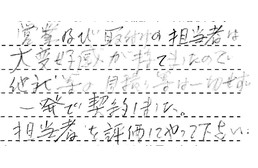 営業及び取付の担当者は
大変好感が持てましたので
他社等の見積り等は一切せず
一発で契約しました。
担当者を評価してやって下さい